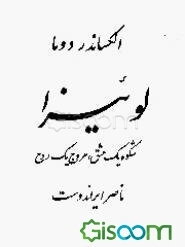 الکساندر دوما
لوئیزا
شکوه یک عشق، عروج یک روح
ناصر ایراندوست
Gisoom
.com